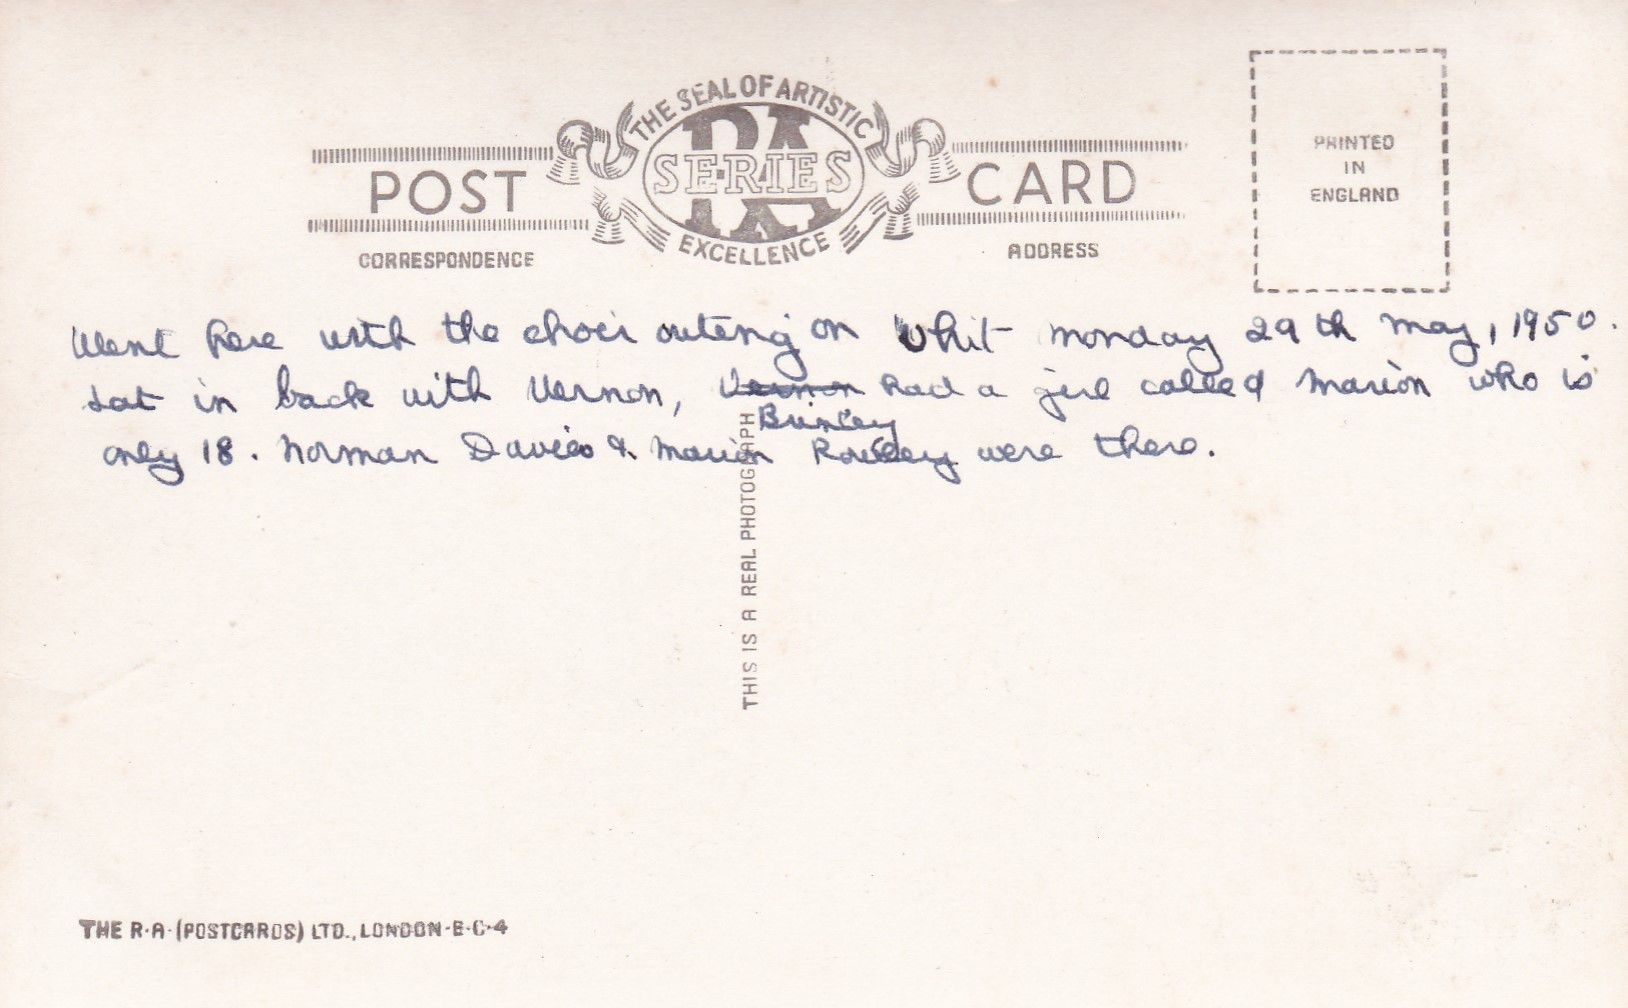 THE SEAL OF ARTISTIC
RA
SERIES
EXCELLENCE
POST CARD
CORRESPONDENCE
ADDRESS
PRINTED
IN
ENGLAND
Went here with the choir outing on Whit Monday 29th May, 1950.
Sat in back with Vernon, Vernon had a girl called Marion who is
Brinley
only 18. Norman Davies & Marion Rowley were there.
THIS IS A REAL PHOTOGRAPH
THE R·A·(POSTCARDS) LTD., LONDON·E·C·4